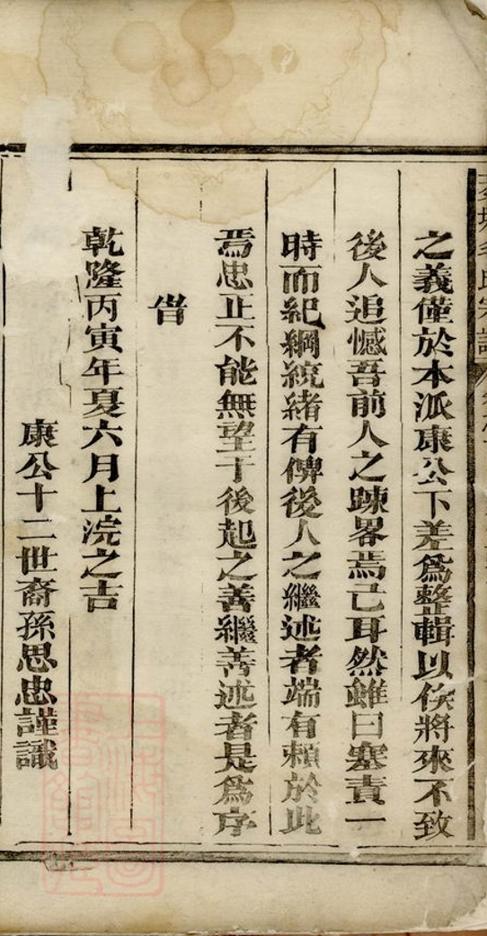 之義僅於本派康公下差爲整輯以俟將來不致
後人追憾吾前人之踈畧焉已耳然雖曰塞責一
時而紀綱統緒有俾後人之繼述者端有賴於此
焉忠正不能無望于後起之善繼善述者是爲序
旹
乾隆丙寅年夏六月上浣之吉
康公十二世裔孫思忠謹識